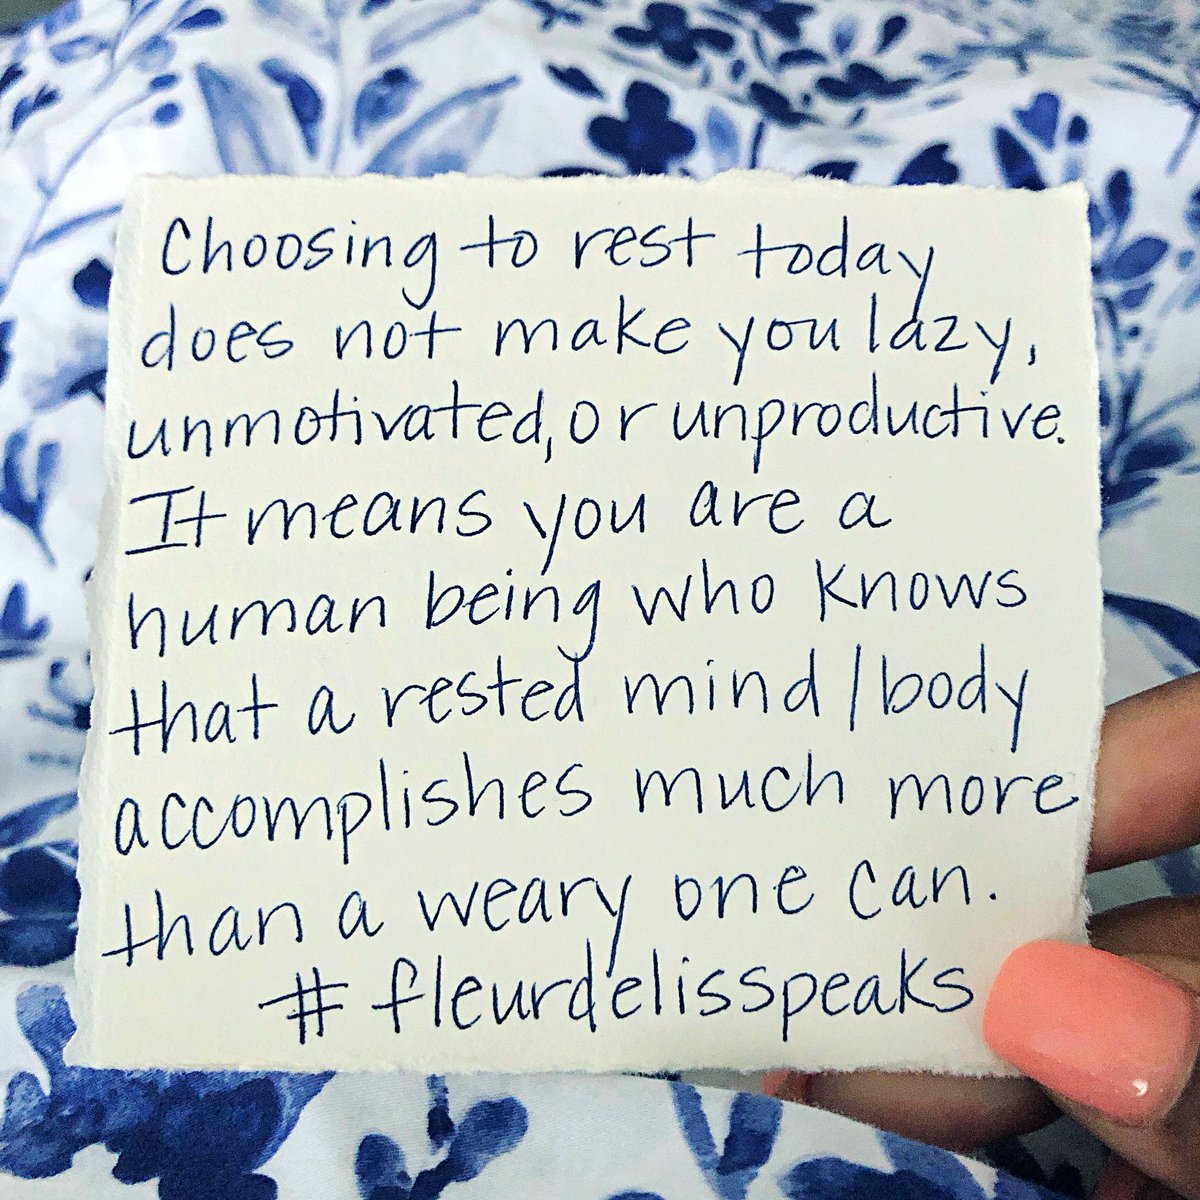 Choosing to rest today
does not make you lazy,
unmotivated, or unproductive.
It means you are a
human being who knows
that a rested mind/body
accomplishes much more
than a weary one can.
#fleurdelisspeaks